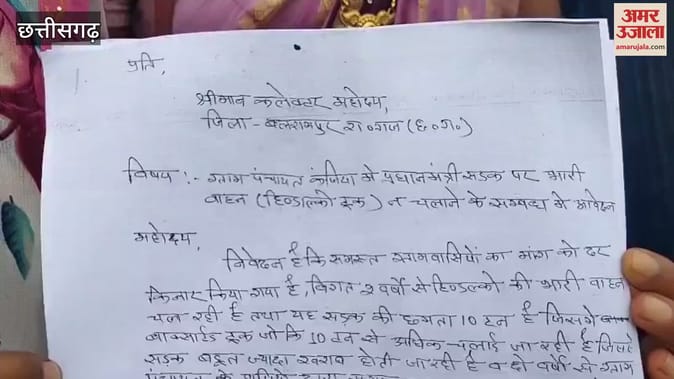 छत्तीसगढ़
अमर
उजाला
amarujala.com
प्रति,
श्रीमान कलेक्टर महोदय,
जिला - बलरामपुर रा०गंज (छ०ग०)
विषय :- ग्राम पंचायत कंजिया में प्रधानमंत्री सड़क पर भारी
वाहन (हिण्डाल्को ट्रक) न चलाने के सम्बन्ध में आवेदन
महोदय,
निवेदन है कि समस्त ग्रामवासियों का मांग को दर
किनार किया गया है, विगत 2 वर्षो से हिण्डाल्को की भारी वाहन
चल रही है तथा यह सड़क की छमता 10 टन है जिसमे
बाक्साईड ट्रक जो कि 10 टन से अधिक चलाई जा रही है जिससे
सड़क बहुत ज्यादा खराब होती जा रही है व दो वर्षो से ग्राम
पंचायत के